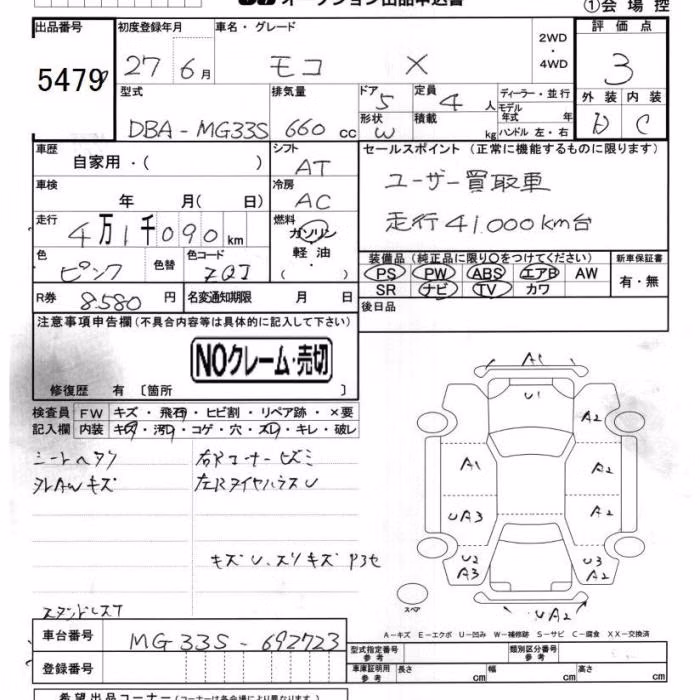 オークション出品申込書
①会場控
出品番号 初度登録年月 車名・グレード 2WD・4WD 評価点
5479 27 6月 モコ X 3
型式 排気量 ドア 5 定員 4 人 ディーラー・並行
モデル年式 年 外装 内装
DBA-MG33S 660 cc 形状 W 積載 kg ハンドル 左・右 D C
車歴 自家用・( ) シフト AT セールスポイント(正常に機能するものに限ります)
車検 年 月( 日) 冷房 AC ユーザー買取車
走行 4万1千090km 燃料 ガソリン 軽油・( ) 走行41.000km台
色 ピンク 色替 色コード ZQJ 装備品(純正品に限り○をつけてください) 新車保証書
PS PW ABS エアB AW 有・無
SR ナビ TV カワ
R券 8.580円 名変通知期限 月 日 後日品
注意事項申告欄(不具合内容等は具体的に記入して下さい)
NOクレーム・売切
修復歴 有〔箇所 〕
検査員 FW キズ・飛石・ヒビ割・リペア跡・×要
記入欄 内装 キズ・汚れ・コゲ・穴・スレ・キレ・破レ
シートヘタリ 右Rコーナーヒズミ
左RタイヤハウスU
キズU、スリキズ P3セ
A1
U1
A2
A1 A2
UA3 A2
U2 A3 U3 A2
UA2
スペア
A-キズ E-エクボ U-凹み W-補修跡 S-サビ C-腐食 XX-交換済
車台番号 MG33S-692723
登録番号
型式指定番号 参考 類別区分番号 参考
車庫証明用 参考 長さ cm 幅 cm 高さ cm
希望出品コーナー(コーナーは各会場により異なります)